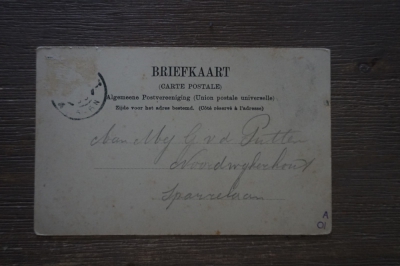 BRIEFKAART
(CARTE POSTALE)
Algemeene Postvereeniging (Union postale universelle)
Zijde voor het adres bestemd. (Côté réservé à l'adresse)
Aan Mej G v d Putte
Noordwijkerhout
Sparrelaan